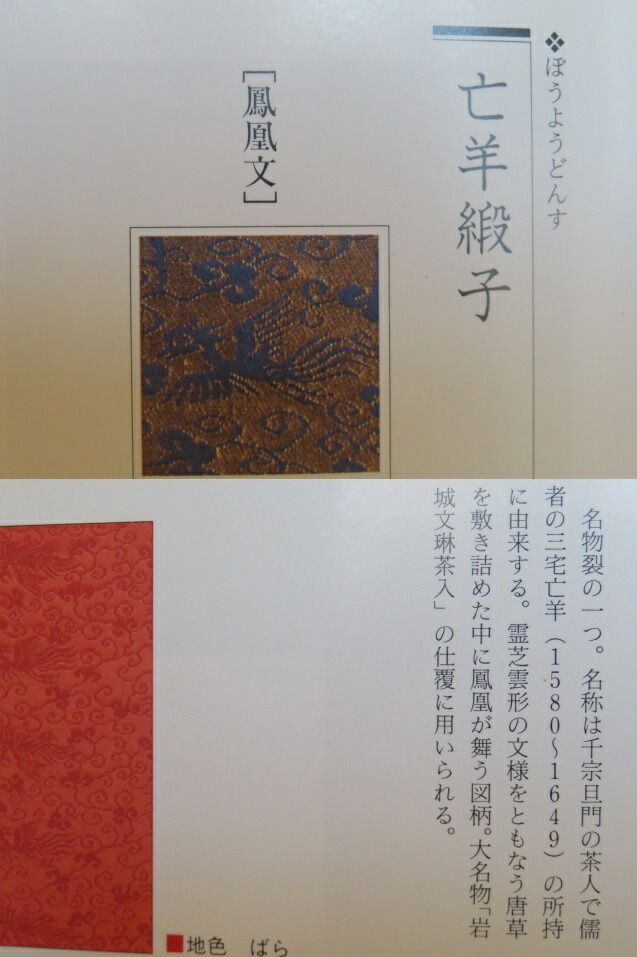 ❖ぼうようどんす
亡羊緞子
[鳳凰文]
名物裂の一つ。名称は千宗旦門の茶人で儒
者の三宅亡羊（1580〜1649）の所持
に由来する。霊芝雲形の文様をともなう唐草
を敷き詰めた中に鳳凰が舞う図柄。大名物「岩
城文琳茶入」の仕覆に用いられる。
■地色　ばら